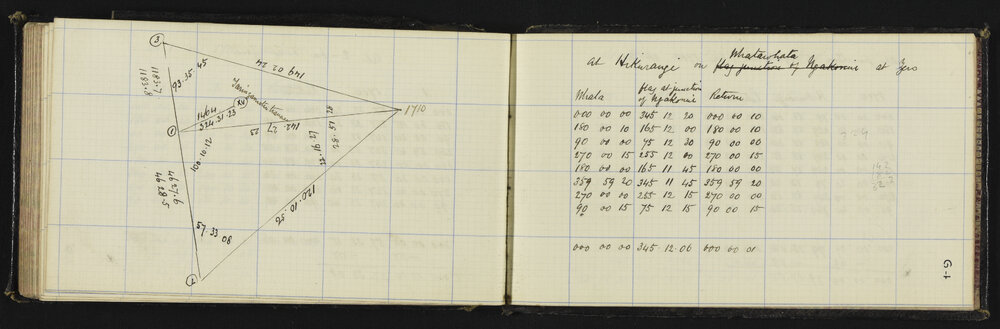 3
149 02 24
93.35 45
1183.7
1183.8
1464
324.31.23
XII
142.27 23
1710
100.10.12
4627.6
4628.5
57.33 08
120.10.56
Whatawhata
At Hikurangi on flag junction of Ngakonui at Zero
Whata
flag at junction
of Ngakonui
Return
000 00 00 345 12 20 000 00 10
180 00 10 165 12 00 180 00 10
90 00 00 75 12 30 90 00 00
270 00 15 255 12 00 270 00 15
180 00 00 165 11 45 180 00 00
359 59 20 345 11 45 359 59 20
270 00 00 255 12 15 270 00 00
90 00 15 75 12 15 90 00 15
000 00 00 345.12.06 000 00 01
G-1